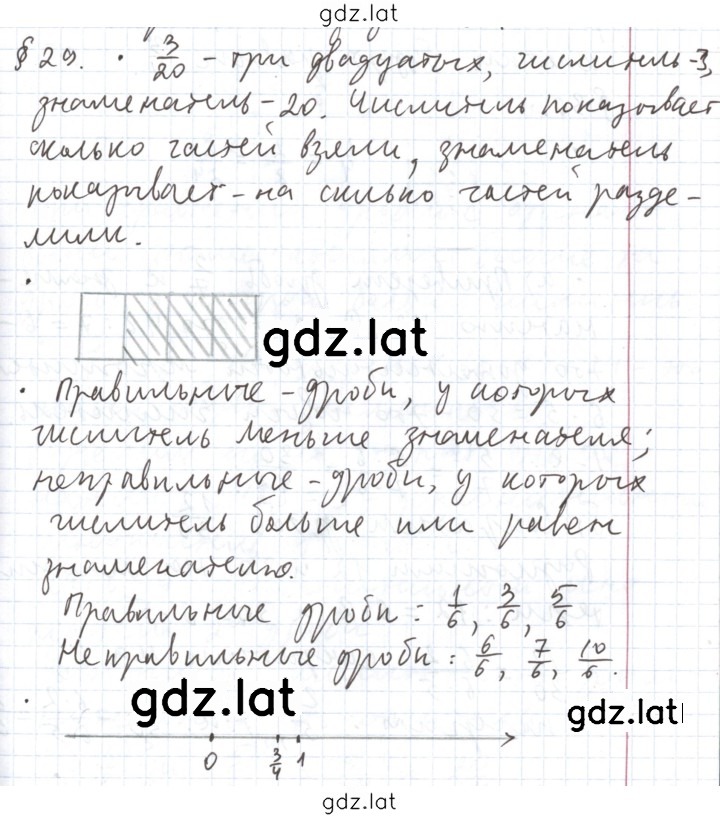 gdz.lat
§ 29. · 3/20 - три двадцатых, числитель - 3,
знаменатель - 20. Числитель показывает
сколько частей взяли, знаменатель
показывает - на сколько частей разде-
лили.
·
gdz.lat
· Правильные - дроби, у которых
числитель меньше знаменателя;
неправильные - дроби, у которых
числитель больше или равен
знаменателю.
Правильные дроби: 1/6, 3/6, 5/6
Неправильные дроби: 6/6, 7/6, 10/6.
gdz.lat
gdz.lat
·
0 3/4 1
gdz.lat